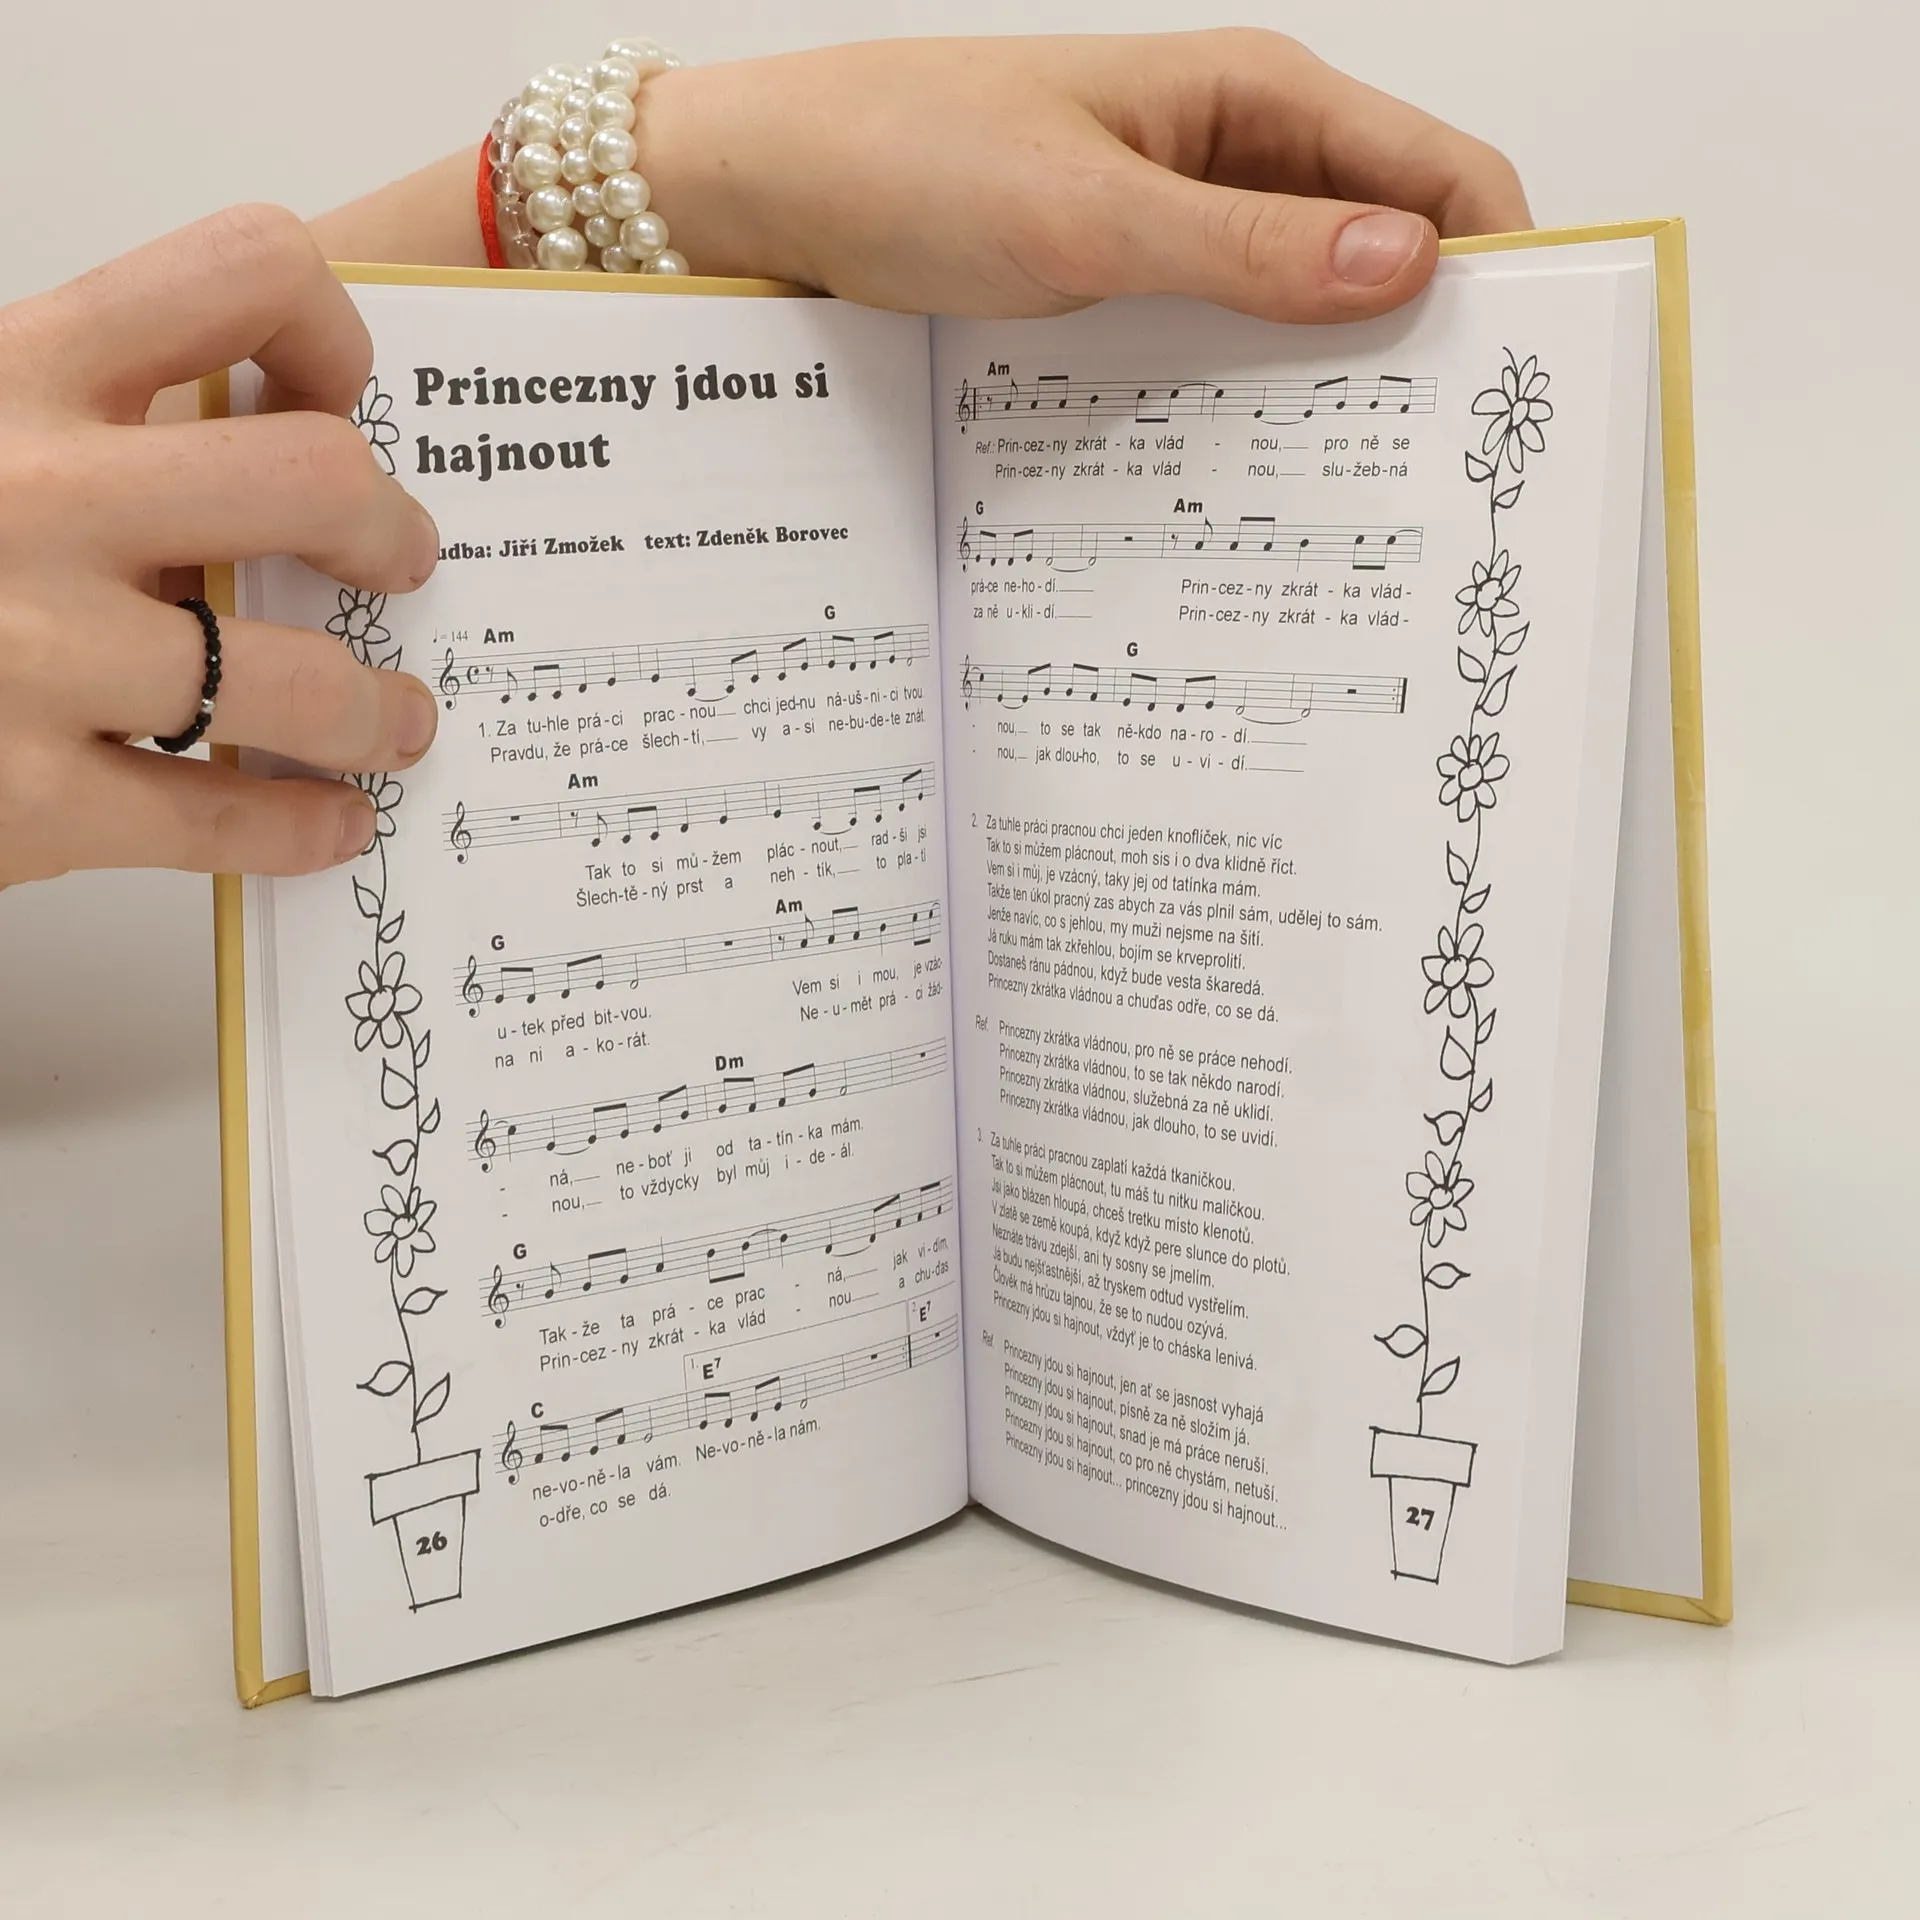 Princezny jdou si
hajnout
udba: Jiří Zmožek text: Zdeněk Borovec
♩= 144 Am G
1. Za tu-hle prá-ci prac-nou chci jed-nu ná-uš-ni-ci tvou.
Pravdu, že prá-ce šlech-tí, vy a-si ne-bu-de-te znát.
Am
Tak to si mů-žem plác-nout, rad-ši jsi
Šlech-tě-ný prst a neh-tík, to pla-tí
G Am
u-tek před bit-vou. Vem si i mou, je vzác-
na ni a-ko-rát. Ne-u-mět prá-ci žád-
Dm
- ná, ne-boť ji od ta-tín-ka mám.
- nou, to vždycky byl můj i-de-ál.
G
Tak-že ta prá-ce prac - ná, jak vi-dím,
Prin-cez-ny zkrát-ka vlád - nou a chu-das
C 1. E7 2. E7
ne-vo-ně-la vám. Ne-vo-ně-la nám.
o-dře, co se dá.
26
Am
Ref.: Prin-cez-ny zkrát-ka vlád - nou, pro ně se
Prin-cez-ny zkrát-ka vlád - nou, slu-žeb-ná
G Am
prá-ce ne-ho-dí. Prin-cez-ny zkrát-ka vlád-
za ně u-kli-dí. Prin-cez-ny zkrát-ka vlád-
G
- nou, to se tak ně-kdo na-ro-dí.
- nou, jak dlou-ho, to se u-vi-dí.
2. Za tuhle práci pracnou chci jeden knoflíček, nic víc
Tak to si můžem plácnout, moh sis i o dva klidně říct.
Vem si i můj, je vzácný, taky jej od tatínka mám.
Takže ten úkol pracný zas abych za vás plnil sám, udělej to sám.
Jenže navíc, co s jehlou, my muži nejsme na šití.
Já ruku mám tak zkřehlou, bojím se krveprolití.
Dostaneš ránu pádnou, když bude vesta škaredá.
Princezny zkrátka vládnou a chuďas odře, co se dá.
Ref. Princezny zkrátka vládnou, pro ně se práce nehodí.
Princezny zkrátka vládnou, to se tak někdo narodí.
Princezny zkrátka vládnou, služebná za ně uklidí.
Princezny zkrátka vládnou, jak dlouho, to se uvidí.
3. Za tuhle práci pracnou zaplatí každá tkaničkou.
Tak to si můžem plácnout, tu máš tu nitku maličkou.
Jsi jako blázen hloupá, chceš tretku místo klenotů.
V zlatě se země koupá, když když pere slunce do plotů.
Neznáte trávu zdejší, ani ty sosny se jmelím.
Já budu nejšťastnější, až tryskem odtud vystřelím.
Člověk má hrůzu tajnou, že se to nudou ozývá.
Princezny jdou si hajnout, vždyť je to cháska lenivá.
Ref. Princezny jdou si hajnout, jen ať se jasnost vyhajá
Princezny jdou si hajnout, písně za ně složím já.
Princezny jdou si hajnout, snad je má práce neruší.
Princezny jdou si hajnout, co pro ně chystám, netuší.
Princezny jdou si hajnout... princezny jdou si hajnout...
27